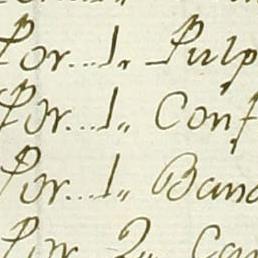 Por...1,, Pulp
Por...1,, Conf
Por...1,, Banc
Por 2,, Can